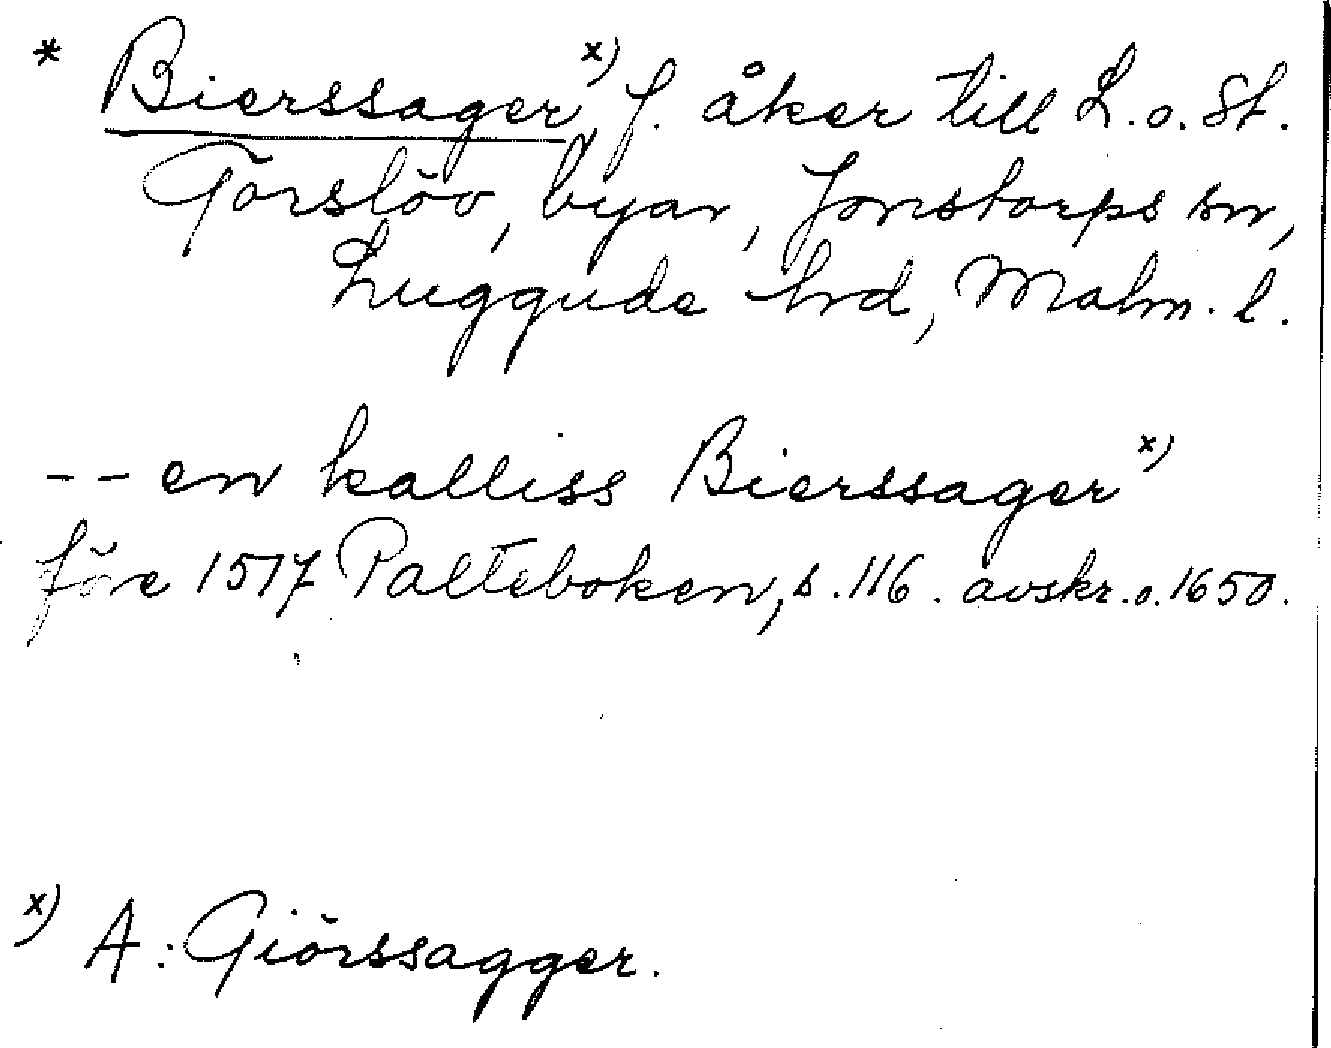 * Bierssager x), f. åker till L. o. St.
Görslöv, byar, Jonstorps sn,
Luggude hrd, Malm. l.
-- en kalliss Bierssager x)
före 1517 Palteboken, s. 116. avskr. o. 1650.
x) A: Giörssagger.